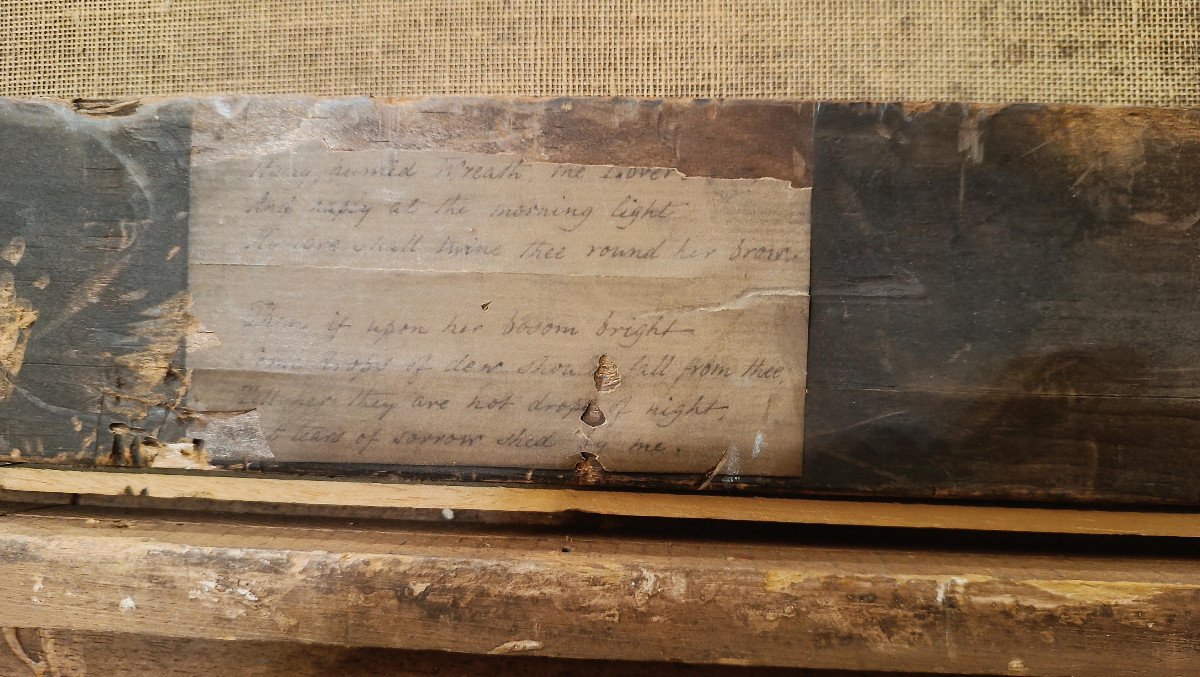 Wreath the Lover
And at the morning light
My love shall twine thee round her brow.
Then, if upon her bosom bright
Some drops of dew shou fall from thee,
Tell her they are not drops of night,
tears of sorrow shed by me.